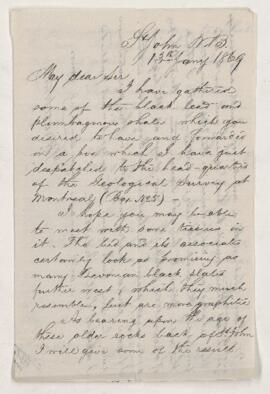 St John N.B.
13th Jany 1869
My dear Sir
I have gathered
some of the black lead and
plumbaginous shales which you
desired to have and forwarded
in a box which I have just
despatched to the head-quarters
of the Geological Survey at
Montreal (Box No 5) -
I hope you may be able
to meet with some traces in
it. The bed and its associates
certainly look as promising as
many Devonian black slates
further west, which they much
resemble, but are more graphitic
As bearing upon the age of
these older rocks back of St John
I will give some of the result